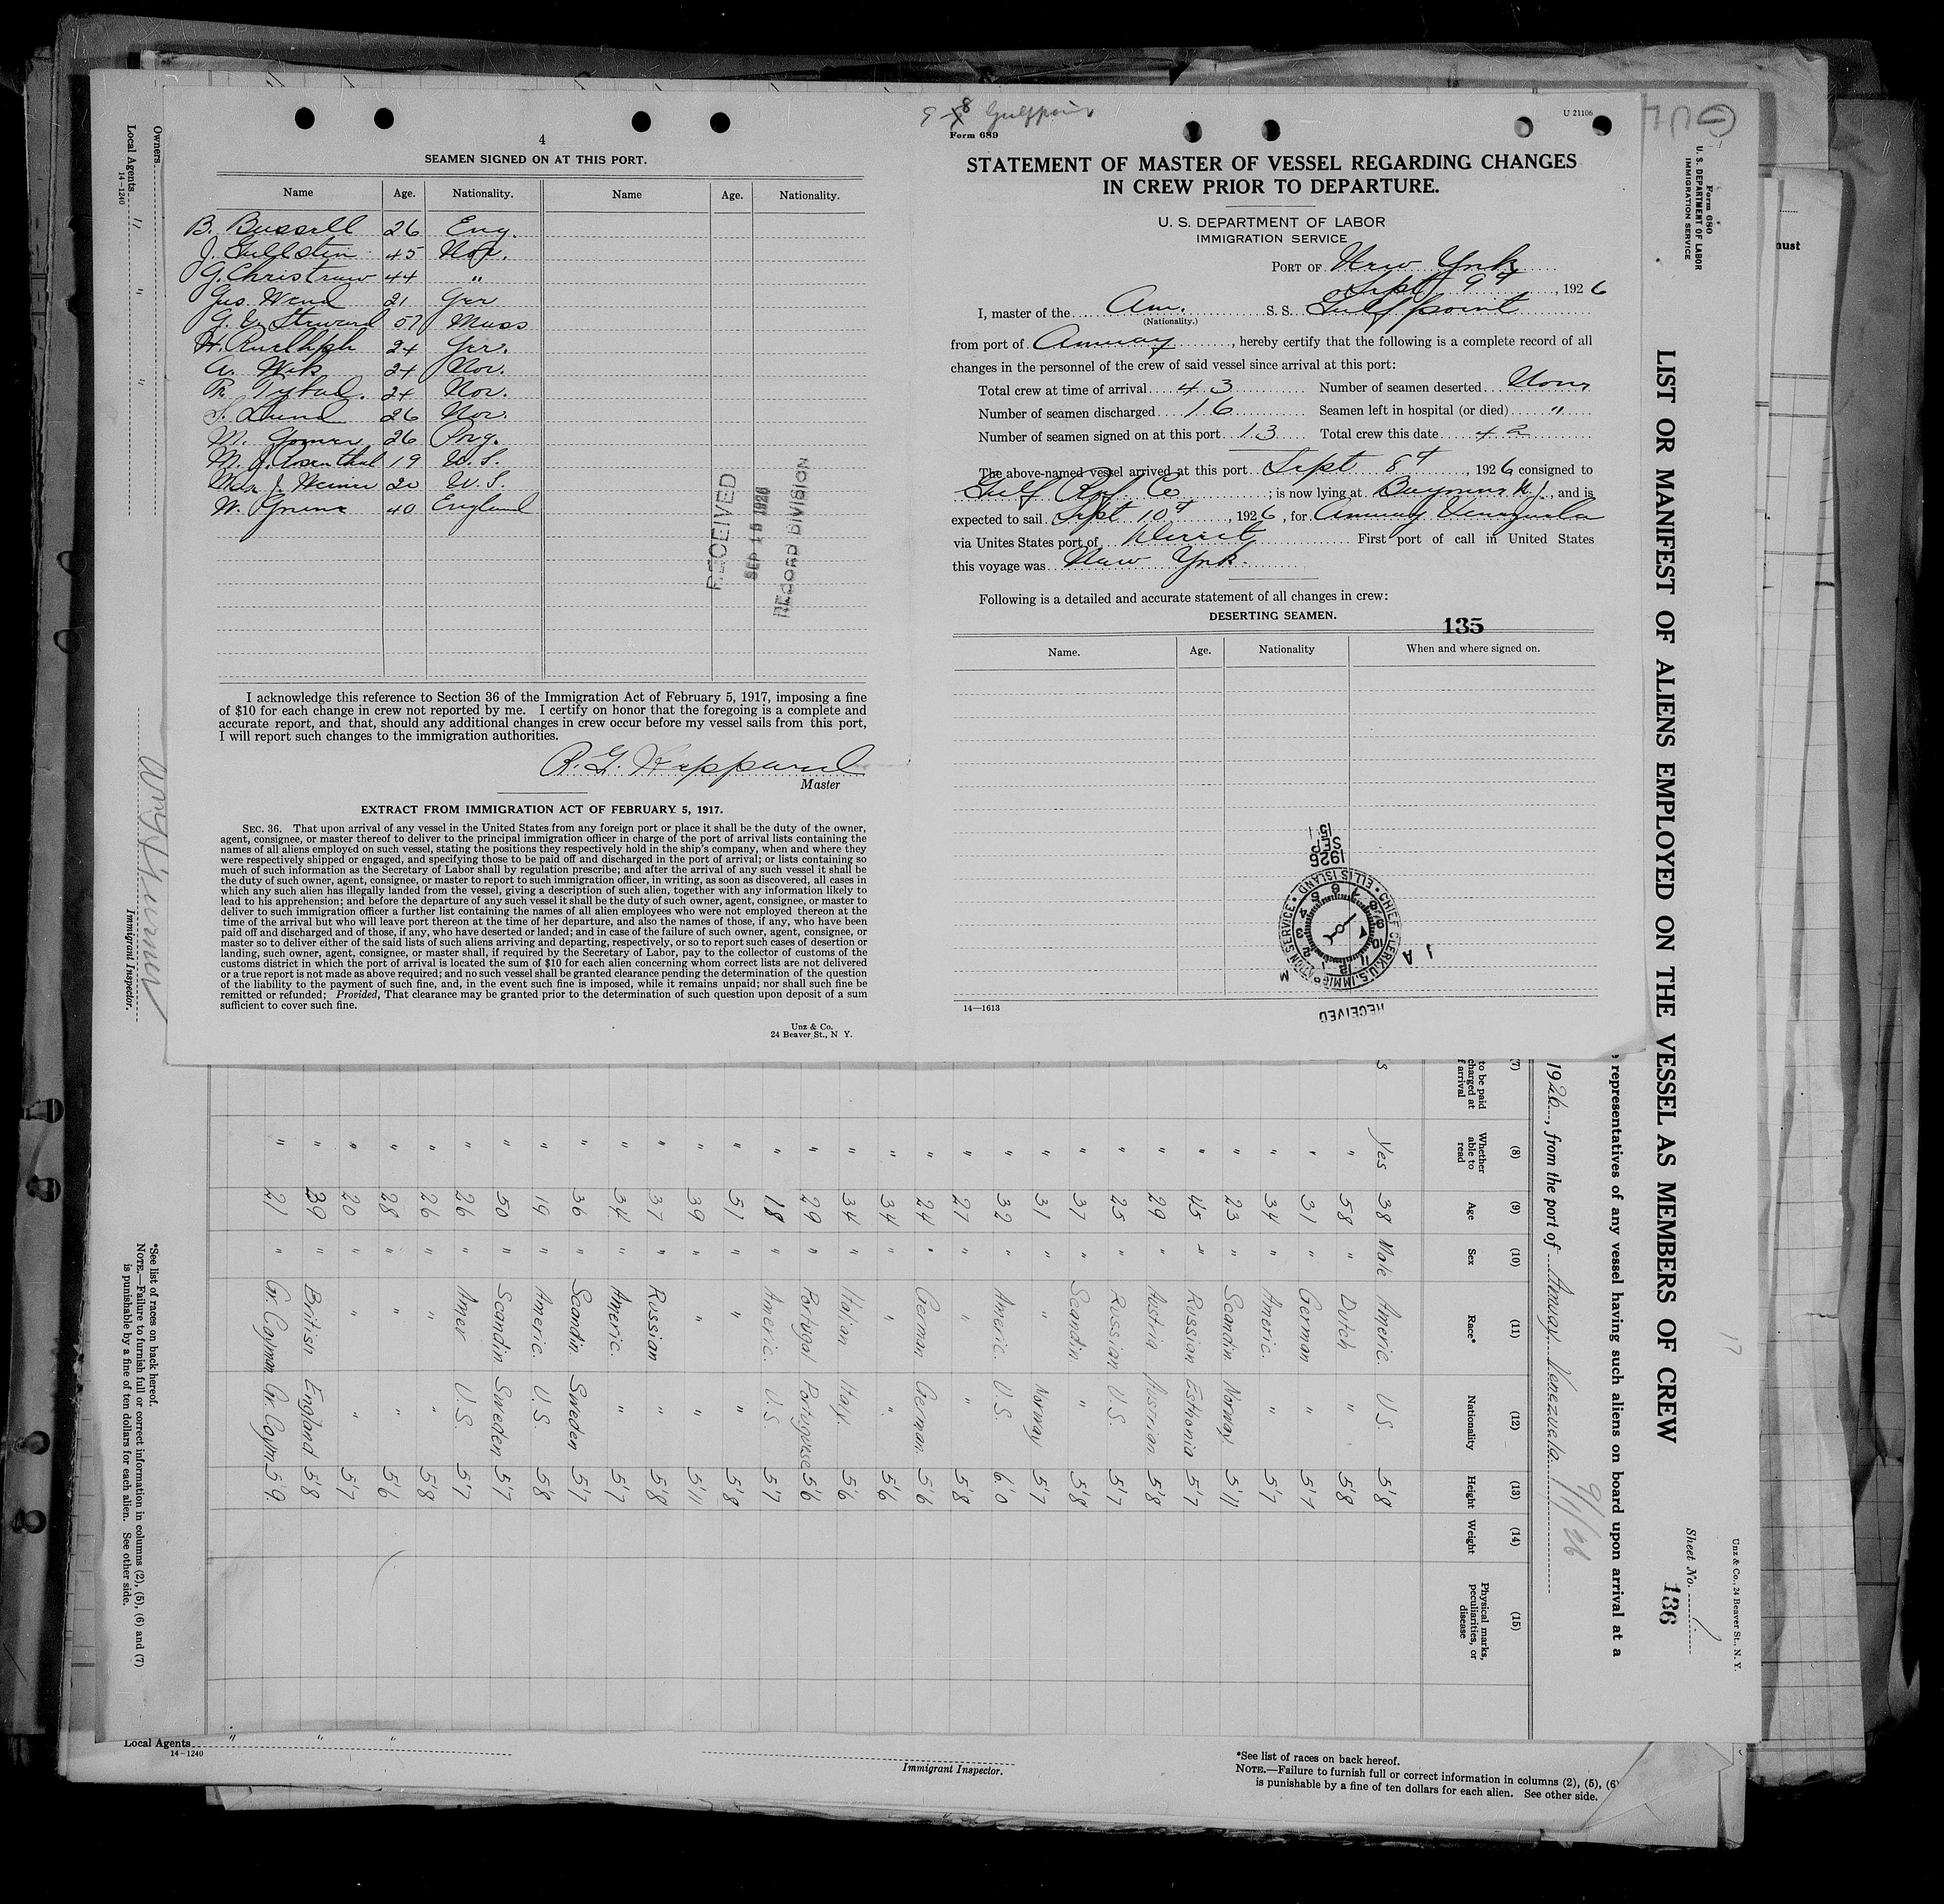 4
SEAMEN SIGNED ON AT THIS PORT.
Name Age. Nationality. Name Age. Nationality.
B. Bussell 26 Eng.
J. 45 Nor.
G. 44 "
Gus. Wend 21 Ger
G. Steward 57 Mass
H. Rudlhph 24 Ger.
A. Wik 24 Nor.
24 Nor.
S. Lund 26 Nor.
M. 26
M. J. Rosenthal 19 U.S.
Max J. 20 U.S.
W. 40 England
RECEIVED
SEP 15 1926
RECORD DIVISION
I acknowledge this reference to Section 36 of the Immigration Act of February 5, 1917, imposing a fine
of $10 for each change in crew not reported by me. I certify on honor that the foregoing is a complete and
accurate report, and that, should any additional changes in crew occur before my vessel sails from this port,
I will report such changes to the immigration authorities.
R. G.
Master
EXTRACT FROM IMMIGRATION ACT OF FEBRUARY 5, 1917.
SEC. 36. That upon arrival of any vessel in the United States from any foreign port or place it shall be the duty of the owner,
agent, consignee, or master thereof to deliver to the principal immigration officer in charge of the port of arrival lists containing the
names of all aliens employed on such vessel, stating the positions they respectively hold in the ship's company, when and where they
were respectively shipped or engaged, and specifying those to be paid off and discharged in the port of arrival; or lists containing so
much of such information as the Secretary of Labor shall by regulation prescribe; and after the arrival of any such vessel it shall be
the duty of such owner, agent, consignee, or master to report to such immigration officer, in writing, as soon as discovered, all cases in
which any such alien has illegally landed from the vessel, giving a description of such alien, together with any information likely to
lead to his apprehension; and before the departure of any such vessel it shall be the duty of such owner, agent, consignee, or master to
deliver to such immigration officer a further list containing the names of all alien employees who were not employed thereon at the
time of the arrival but who will leave port thereon at the time of her departure, and also the names of those, if any, who have been
paid off and discharged and of those, if any, who have deserted or landed; and in case of the failure of such owner, agent, consignee, or
master so to deliver either of the said lists of such aliens arriving and departing, respectively, or so to report such cases of desertion or
landing, such owner, agent, consignee, or master shall, if required by the Secretary of Labor, pay to the collector of customs of the
customs district in which the port of arrival is located the sum of $10 for each alien concerning whom correct lists are not delivered
or a true report is not made as above required; and no such vessel shall be granted clearance pending the determination of the question
of the liability to the payment of such fine, and, in the event such fine is imposed, while it remains unpaid; nor shall such fine be
remitted or refunded; Provided, That clearance may be granted prior to the determination of such question upon deposit of a sum
sufficient to cover such fine.
Unz & Co.
24 Beaver St., N Y.
9 8 Gulfpoint
U 21106
Form 689
STATEMENT OF MASTER OF VESSEL REGARDING CHANGES
IN CREW PRIOR TO DEPARTURE.
U. S. DEPARTMENT OF LABOR
IMMIGRATION SERVICE
PORT OF New York
Sept 9th, 1926
I, master of the Am. S. S. Gulfpoint
(Nationality.)
from port of Amuay, hereby certify that the following is a complete record of all
changes in the personnel of the crew of said vessel since arrival at this port:
Total crew at time of arrival 43 Number of seamen deserted None
Number of seamen discharged 16 Seamen left in hospital (or died) "
Number of seamen signed on at this port 13 Total crew this date 42
The above-named vessel arrived at this port Sept 8th, 1926 consigned to
Gulf Ref. Co; is now lying at Bayonne N.J., and is
expected to sail Sept 10th, 1926, for Amuay Venezuela
via Unites States port of Direct First port of call in United States
this voyage was New York.
Following is a detailed and accurate statement of all changes in crew:
DESERTING SEAMEN.
135
Name. Age. Nationality When and where signed on.
1926
SEP
15
CHIEF CLERK U.S. IMMIGRATION SERVICE ELLIS ISLAND
RECEIVED
14—1613
Form 680
U. S. DEPARTMENT OF LABOR
IMMIGRATION SERVICE
LIST OR MANIFEST OF ALIENS EMPLOYED ON THE VESSEL AS MEMBERS OF CREW
Unz & Co., 24 Beaver St., N. Y.
Sheet No. 1
136
17
representatives of any vessel having such aliens on board upon arrival at a
1926, from the port of Amuay Venezuela
9/1/26
(7) (8) (9) (10) (11) (12) (13) (14) (15)
to be paid charged at arrival Whether able to read Age Sex Race* Nationality Height Weight Physical marks, peculiarities, or disease
Yes 38 Male Americ. U.S. 5'8
" 58 " Dutch " 5'8
" 31 " German " 5'7
" 34 " Americ. " 5'7
" 23 " Scandin Norway 5'11
" 45 " Russian Esthonia 5'7
" 29 " Austria Austrian 5'8
" 25 " Russian U.S. 5'7
" 37 " Scandin " 5'8
" 31 " " Norway 5'7
" 32 " Americ. U.S. 6'0
" 27 " " " 5'8
" 24 " German German 5'6
" 34 " " " 5'6
" 34 " Italian Italy 5'6
" 29 " Portugal Portuguese 5'6
" 18 " Americ. U.S. 5'7
" 51 " " " 5'8
" 39 " " " 5'11
" 37 " Russian " 5'8
" 34 " Americ. " 5'7
" 36 " Scandin Sweden 5'7
" 19 " Americ. U.S. 5'8
" 50 " Scandin Sweden 5'7
" 26 " Amer U.S. 5'7
" 26 " " " 5'8
" 28 " " " 5'6
" 20 " " " 5'7
" 39 " British England 5'8
" 21 " Gr. Cayman Gr. Caym 5'9.
Owners
Local Agents
14—1240
Immigrant Inspector.
*See list of races on back hereof.
NOTE.—Failure to furnish full or correct information in columns (2), (5), (6) and (7)
is punishable by a fine of ten dollars for each alien. See other side.
Local Agents
14—1240
Immigrant Inspector.
*See list of races on back hereof.
NOTE.—Failure to furnish full or correct information in columns (2), (5), (6)
is punishable by a fine of ten dollars for each alien. See other side.
must